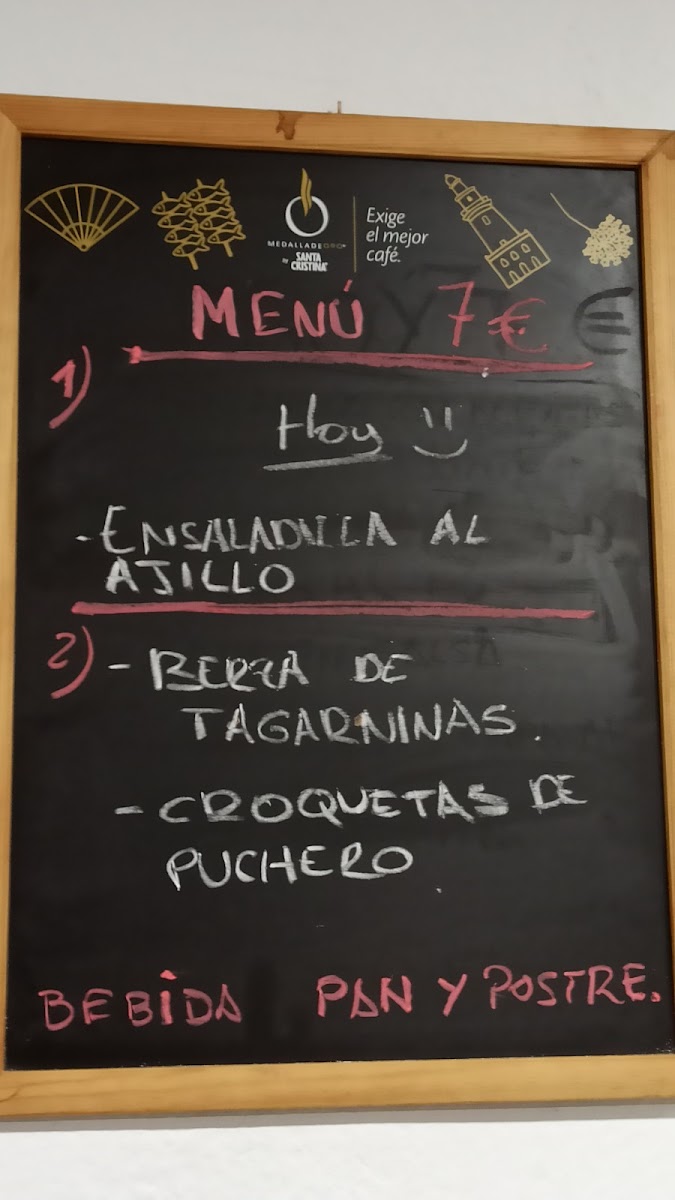 MEDALLADEORO
by SANTA
CRISTINA
Exige
el mejor
café.
MENÚ 7€ €
1)
Hoy
- ENSALADILLA AL
AJILLO
2) - BERZA DE
TAGARNINAS.
- CROQUETAS DE
PUCHERO
BEBIDA PAN Y POSTRE.